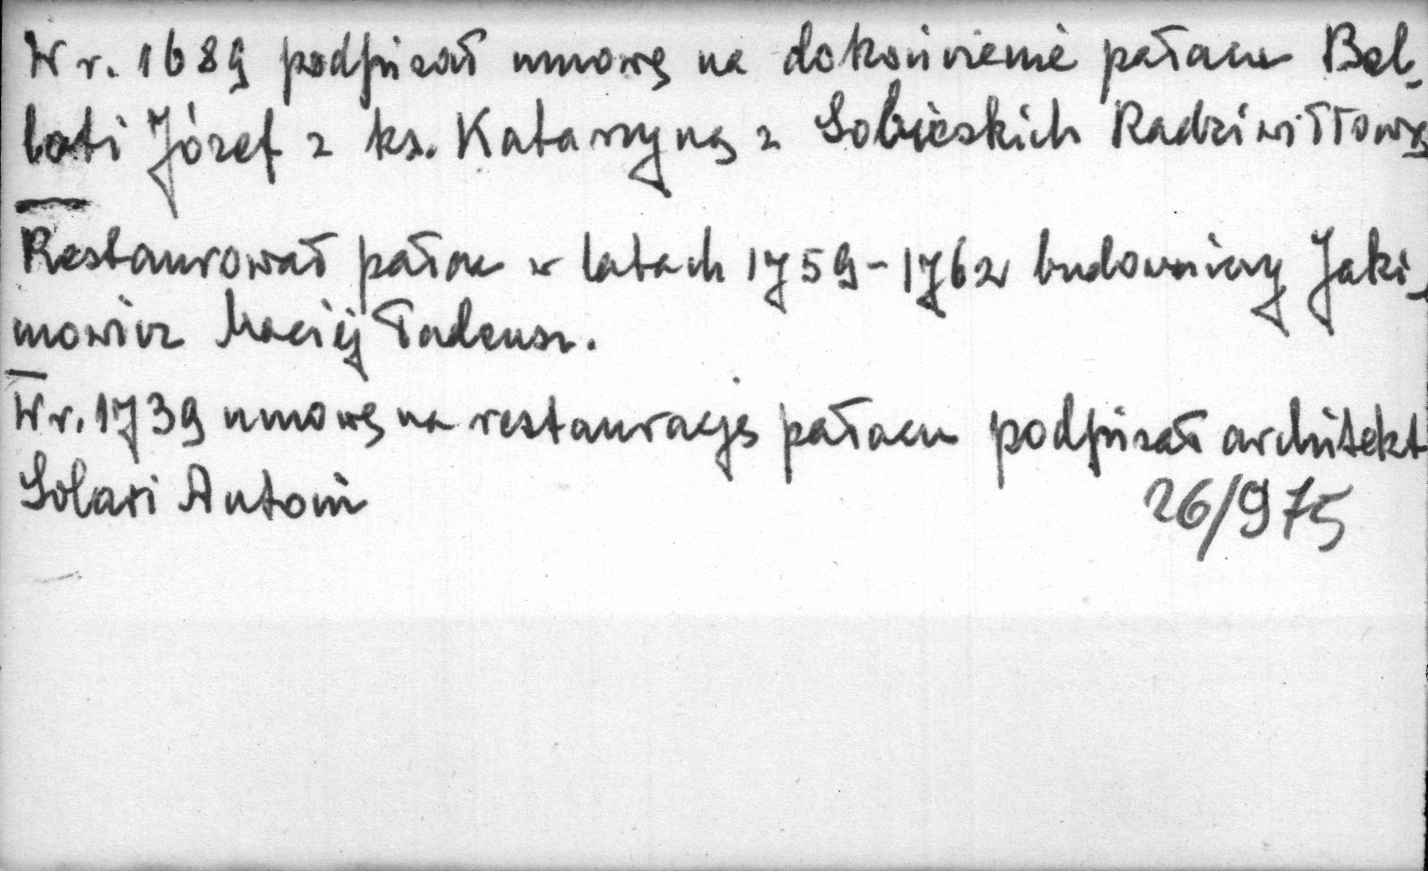 W r. 1689 podpisał umowę na dokończenie pałacu Bel-
loti Józef z ks. Katarzyną z Sobieskich Radziwiłłową
Restaurował pałac w latach 1759-1762 budowniczy Jaki-
mowicz Maciej Tadeusz.
W r. 1739 umowę na restaurację pałacu podpisał architekt
Solari Antoni
26/975